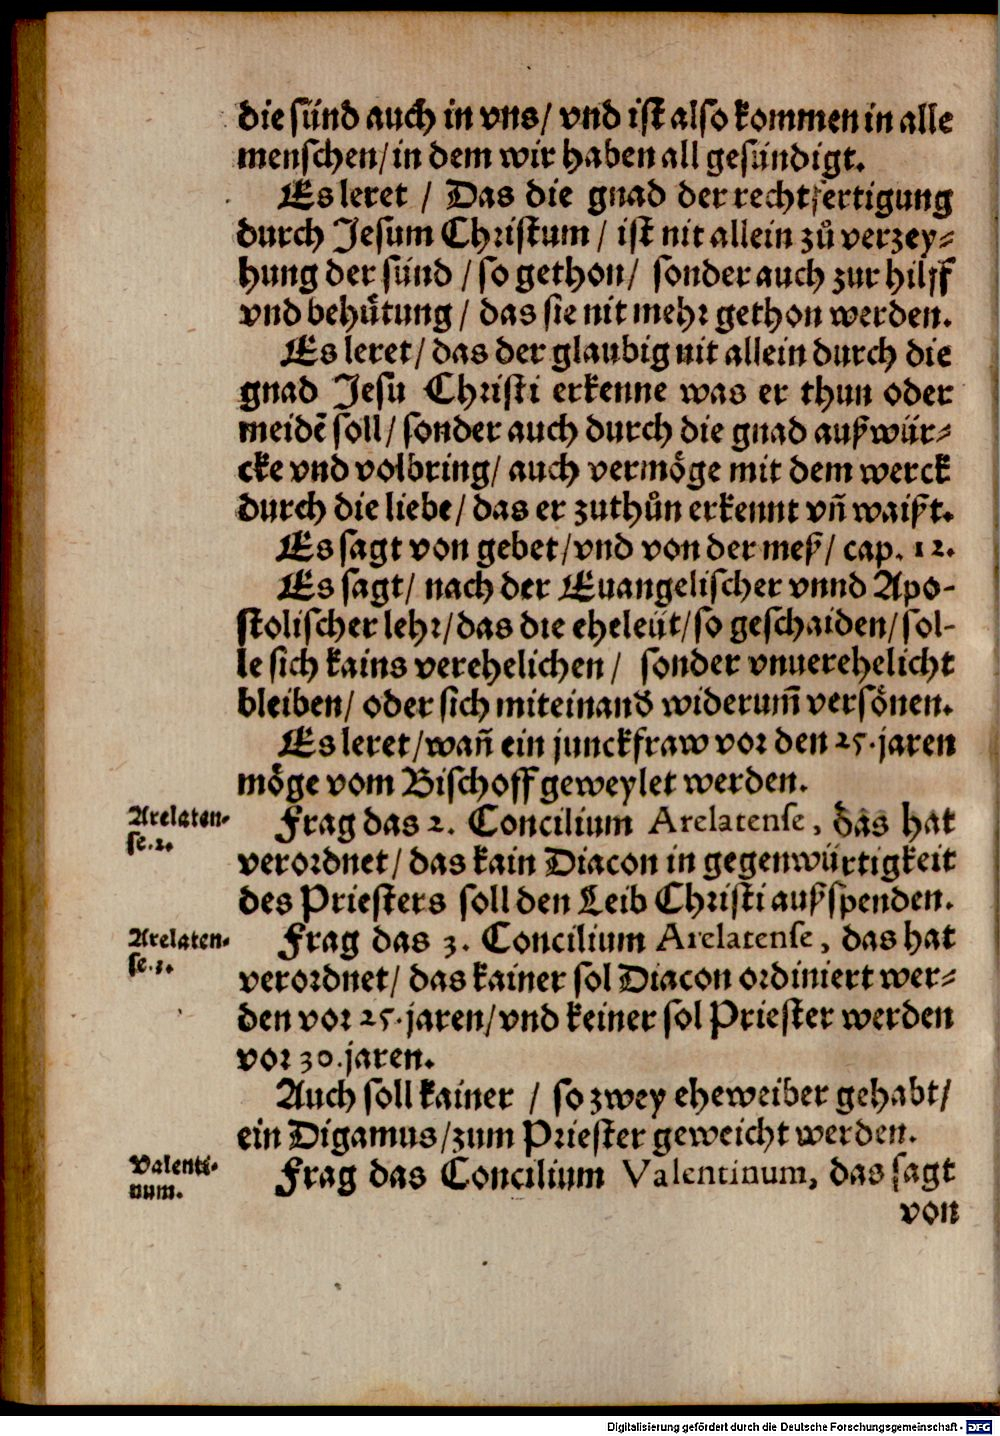 die sünd auch in vns/ vnd ist also kommen in alle
menschen/ in dem wir haben all gesündigt.
Es leret / Das die gnad der rechtfertigung
durch Jesum Christum / ist nit allein zů verzey-
hung der sünd / so gethon/ sonder auch zur hilff
vnd behütung / das sie nit mehr gethon werden.
Es leret/ das der glaubig nit allein durch die
gnad Jesu Christi erkenne was er thun oder
meidē soll/ sonder auch durch die gnad außwür-
cke vnd volbring/ auch vermöge mit dem werck
durch die liebe/ das er zuthůn erkennt vñ waißt.
Es sagt von gebet/vnd von der meß/ cap. 12.
Es sagt/ nach der Euangelischer vnnd Apo-
stolischer lehr/das die eheleüt/so geschaiden/sol-
le sich kains verehelichen/ sonder vnuerehelicht
bleiben/ oder sich miteinand widerum̄ versönen.
Es leret/wañ ein junckfraw vor den 25.jaren
möge vom Bischoff geweylet werden.
Arelaten-
se.2.
Frag das 2. Concilium Arelatense, das hat
verordnet/ das kain Diacon in gegenwürtigkeit
des Priesters soll den Leib Christi außspenden.
Arelaten-
se.3.
Frag das 3. Concilium Arelatense, das hat
verordnet/ das kainer sol Diacon ordiniert wer-
den vor 25.jaren/vnd keiner sol Priester werden
vor 30.jaren.
Auch soll kainer / so zwey eheweiber gehabt/
ein Digamus/zum Priester geweicht werden.
Valenti-
num.
Frag das Concilium Valentinum, das sagt
von
Digitalisierung gefördert durch die Deutsche Forschungsgemeinschaft - DFG